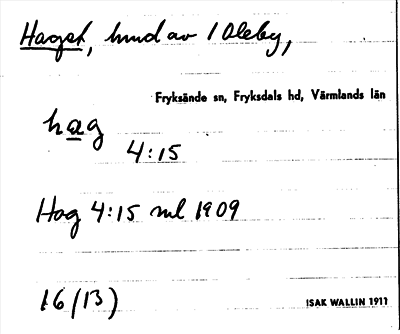 Hagst, hmd av 1 Oleby,
Fryksände sn, Fryksdals hd, Värmlands län
hag
4:15
Hag 4:15 ml 1909
16 (13)
ISAK WALLIN 1911